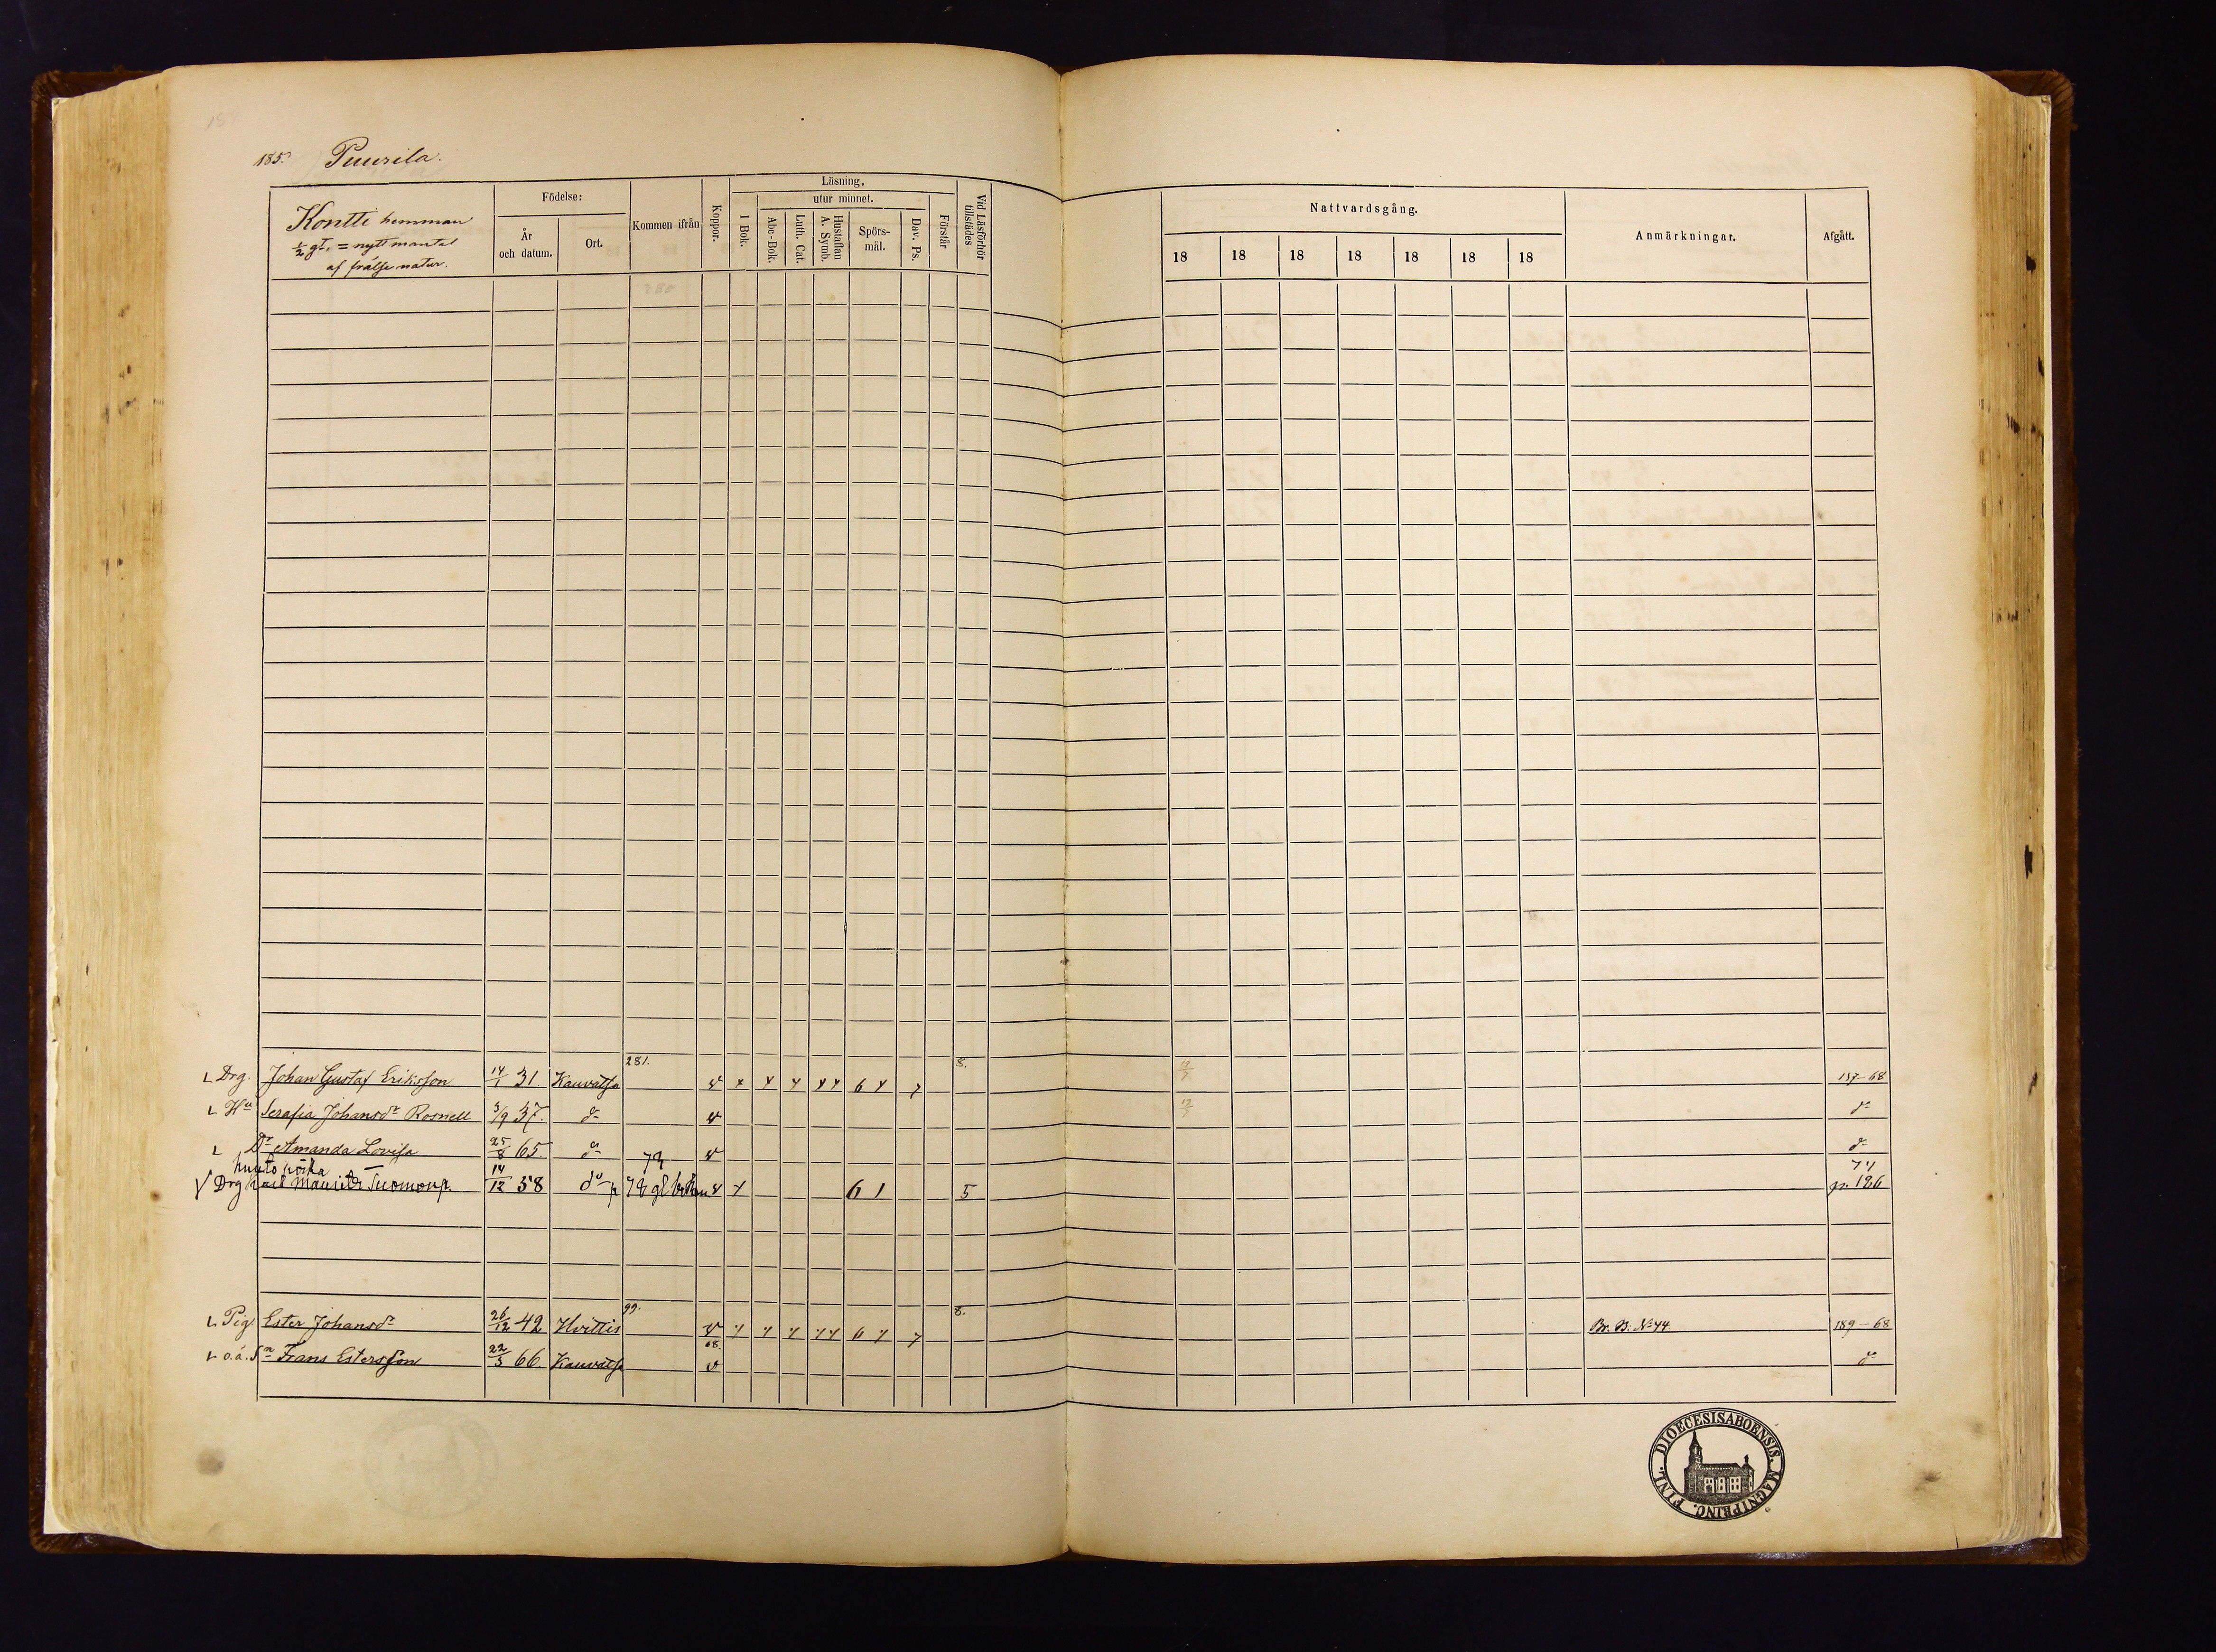 185. Puurila.
Kontti hemman
1/2 gl. = nytt mantal
af frälse natur.
Födelse:
År och datum.
Ort.
Kommen ifrån
Koppor.
Läsning,
utur minnet.
I Bok.
Abc-Bok.
Luth. Cat.
Hustaflan A. Symb.
Spörs-mål.
Dav. Ps.
Förstår
Vid Läsförhör tillstädes
Nattvardsgång.
18 18 18 18 18 18 18
Anmärkningar.
Afgått.
280
281. 8.
Drg. Johan Gustaf Eriksson 14/1 31. Kauvatsa v x x x x x 6 x 7 187-68
Hu Serafia Johansdr Rosnell 3/9 37. do v do
Dr Amanda Lovisa 25/8 65 do v do
huuto poika 72 74
Drg Karl Maurits Tuomonp. 14/12 58 do 6 1 5 p. 126
99. 8.
Pig. Ester Johansdr 26/12 42 Hvittis v x x x x x 6 x 7 Br. B. No 44. 189-68
68.
o.ä. Sn Frans Estersson 22/3 66. Kauvatsa v do
FINL. DIOECESIS ABOENSIS. MAGNI PRINC.